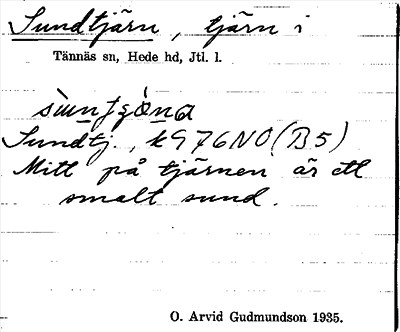 Sundtjärn, tjärn i
Tännäs sn, Hede hd, Jtl. l.
Sundtj., k976NO (B5)
Mitt på tjärnen är ett
smalt sund.
O. Arvid Gudmundson 1935.